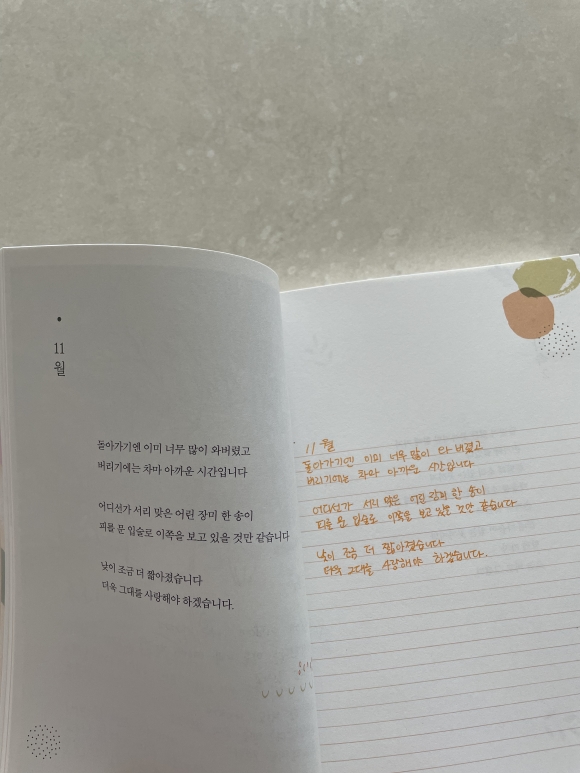 11
월
돌아가기엔 이미 너무 많이 와버렸고
버리기에는 차마 아까운 시간입니다
어디선가 서리 맞은 어린 장미 한 송이
피를 문 입술로 이쪽을 보고 있을 것만 같습니다
낮이 조금 더 짧아졌습니다
더욱 그대를 사랑해야 하겠습니다.
11월
돌아가기엔 이미 너무 많이 와 버렸고
버리기에는 차마 아까운 시간입니다
어디선가 서리 맞은 어린 장미 한 송이
피를 문 입술로 이쪽을 보고 있을 것만 같습니다
낮이 조금 더 짧아졌습니다
더욱 그대를 사랑해야 하겠습니다.